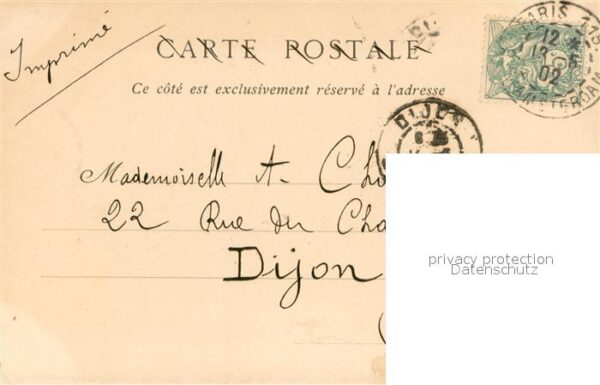 Imprimé
CARTE POSTALE
Ce côté est exclusivement réservé à l'adresse
PARIS
12
02
AMSTERDAM
DIJON
Mademoiselle A. Cho
22 Rue du Cha
Dijon
privacy protection
Datenschutz